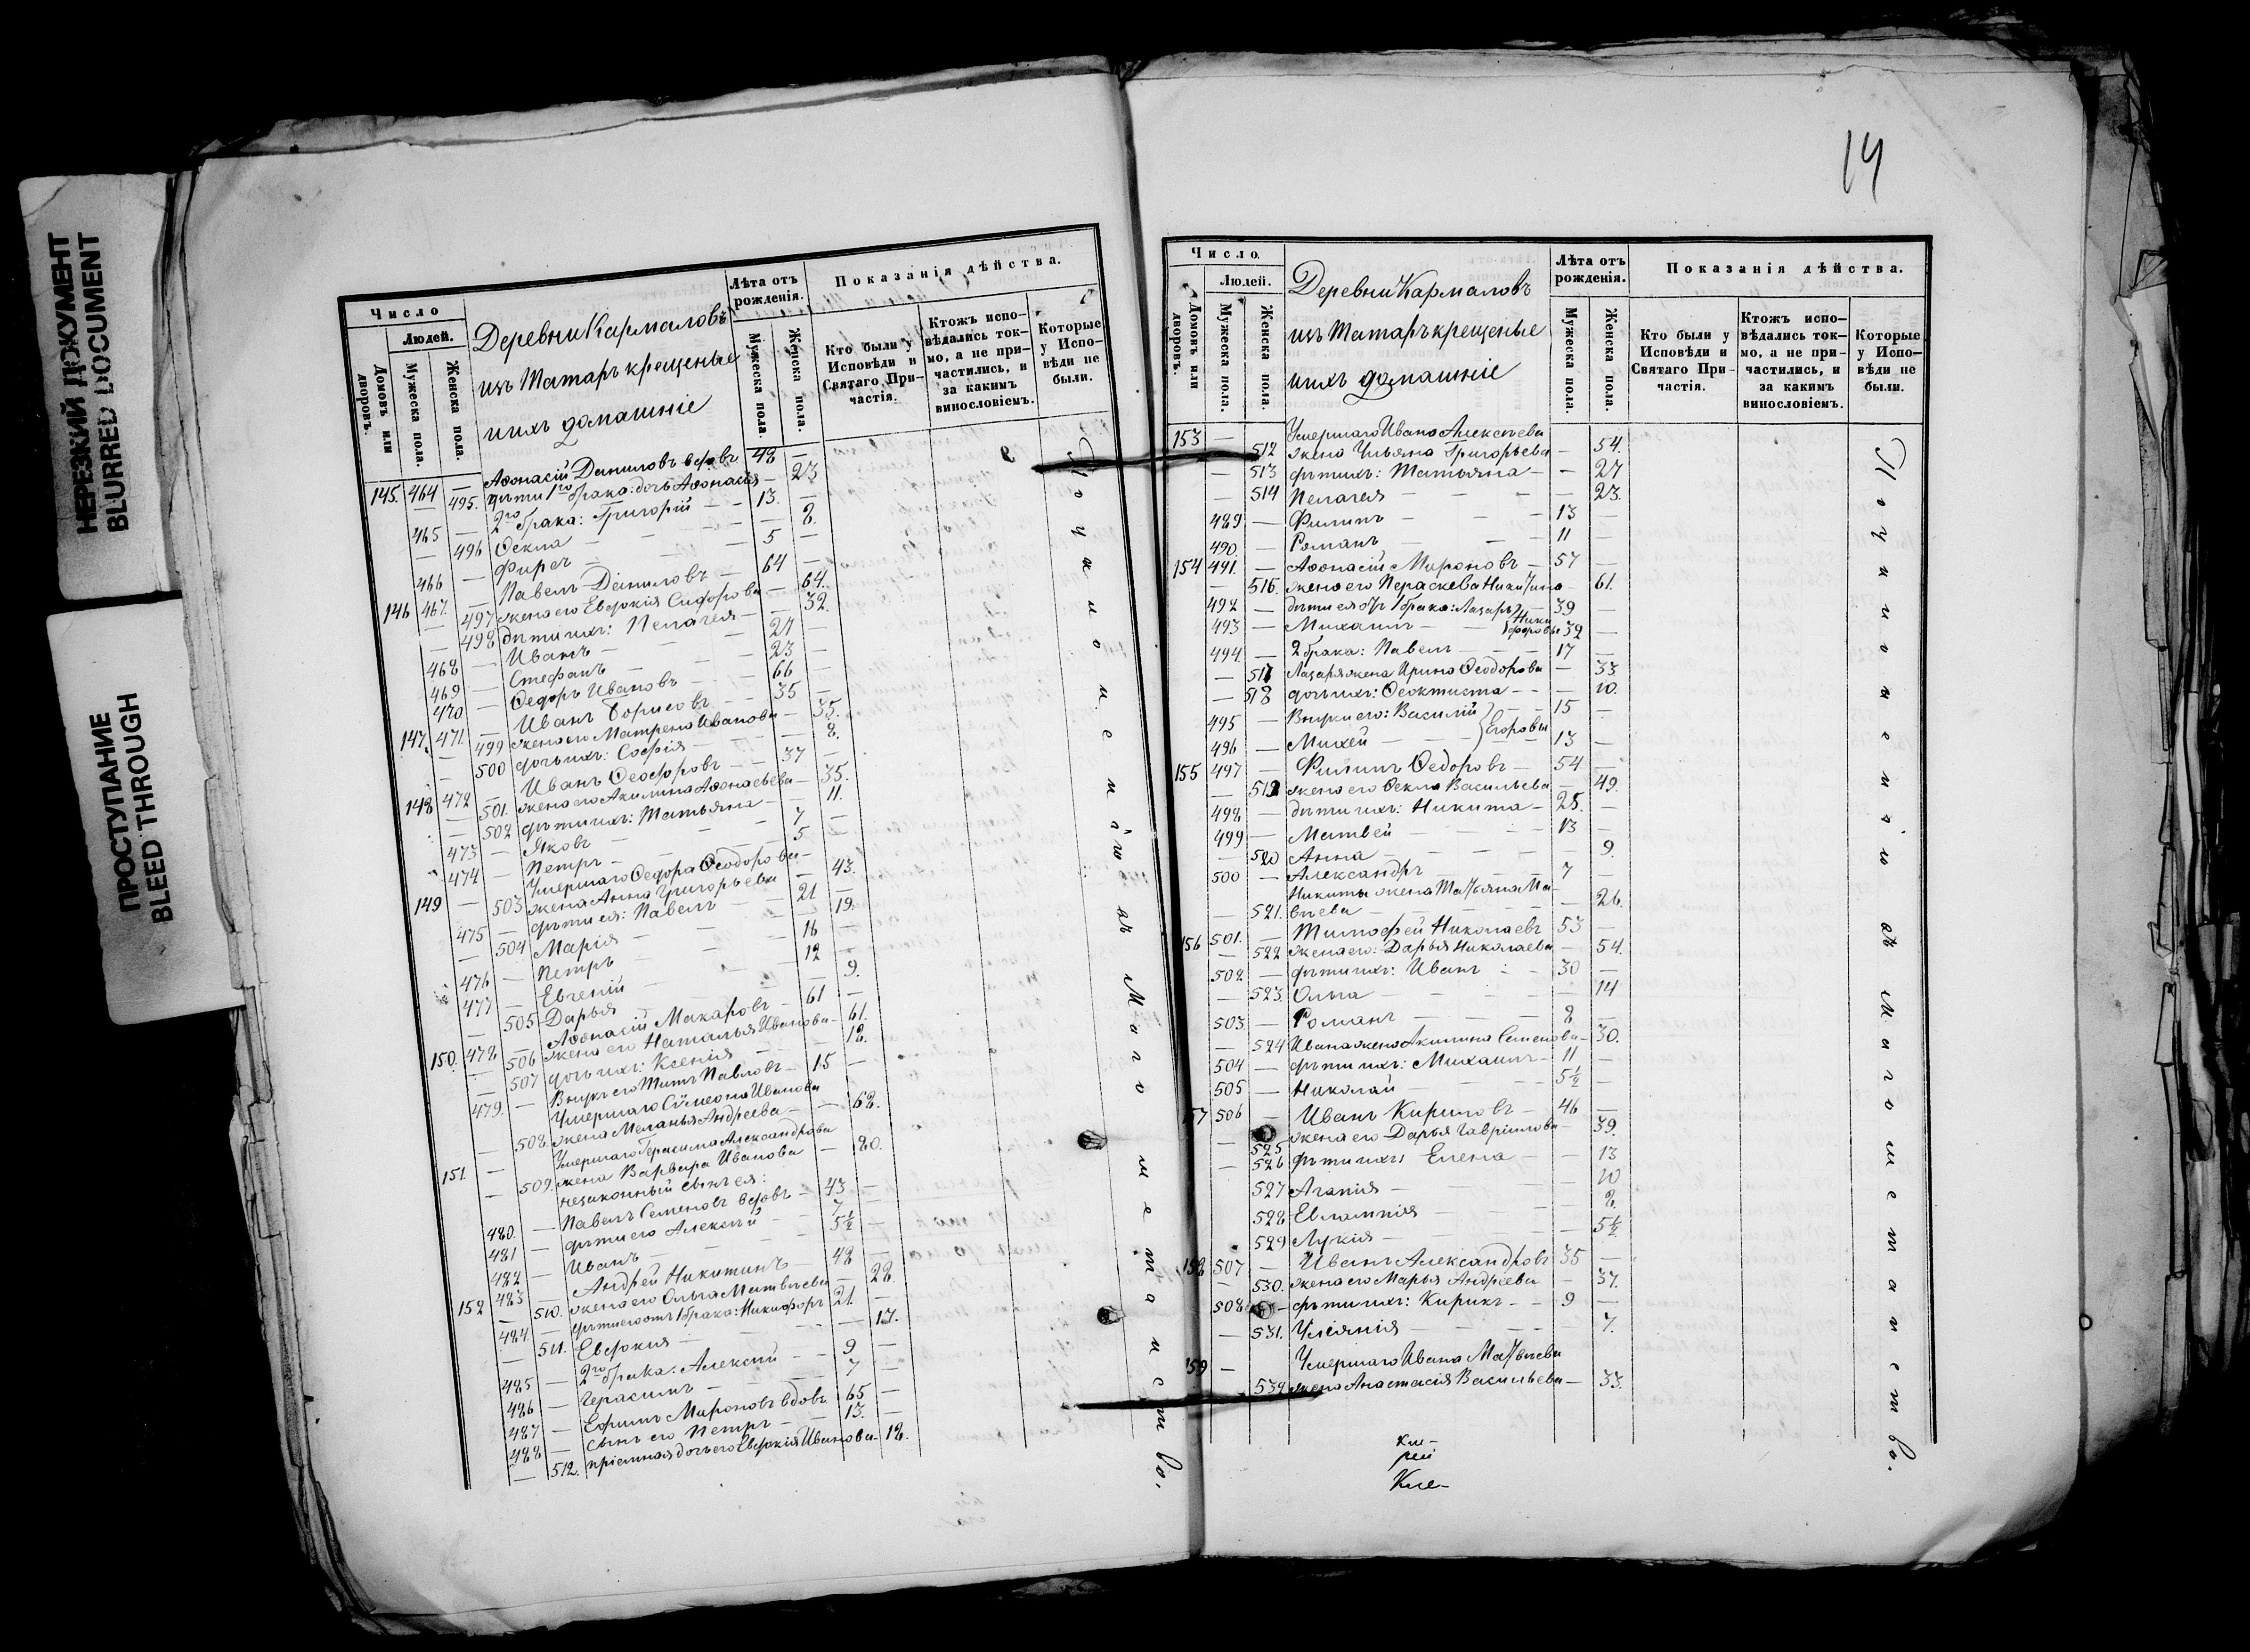 НЕРЕЗКИЙ ДОКУМЕНТ
BLURRED DOCUMENT
ПРОСТУПАНИЕ
BLEED THROUGH
Число
Людей.
Домовъ или дворовъ.
Мужеска пола.
Женска пола.
Деревни Кармаловъ
изъ Татаръ крещеные
и ихъ домашніе
Лѣта отъ рожденія.
Мужеска пола.
Женска пола.
Показанія дѣйства.
Кто были у Исповѣди и Святаго При-частія.
Ктожъ испо-вѣдались ток-мо, а не при-частились, и за какимъ винословіемъ.
Которые у Испо-вѣди не были.
145. 464 — Аѳонасій Даниловъ вдовъ 48 —
— 495. дѣти 1го брака: дочь Аѳонасія — 23
465 — 2го брака: Григорій — 13. —
— 496 Ѳекла — 8.
466 — Фирсъ — 5 —
146 467. — Павелъ Даниловъ — 64 —
— 497 жена его Евдокія Сидорова — 64.
— 498 дѣти ихъ: Пелагея — 32.
468 — Иванъ — 27 —
469 — Стефанъ — 23 —
470 — Ѳедоръ Ивановъ — 66 —
147. 471. — Иванъ Борисовъ — 35 —
— 499 жена его Матрена Иванова — 35.
— 500 дочь ихъ: Софія — 8.
148 472 — Иванъ Ѳеодоровъ — 37 —
— 501. жена его Акилина Аѳонасьева — 35.
— 502 дѣти ихъ: Татьяна — 11.
473 — Яковъ — 7 —
474 — Петръ — 5 —
Умершаго Ѳедора Ѳеодорова
149 — 503 жена Анна Григорьева — 43.
475 — дѣти ея: Павелъ — 21 —
— 504 Марія — 19.
476 — Петръ — 16 —
477 — Евгеній — 12 —
— 505 Дарья — 9.
150. 478 — Аѳонасій Макаровъ — 61 —
— 506 жена его Наталья Иванова — 61.
— 507 дочь ихъ: Ксенія — 18.
479. — Внукъ его Титъ Павловъ — 15 —
Умершаго Сумеона Иванова
— 508. жена Меланья Андреева — 68.
Умершаго Герасима Александрова
151. — 509. жена Варвара Иванова — 80.
незаконный сынъ ея:
480. — Павелъ Семеновъ вдовъ — 43 —
481 — дѣти его Алексѣй — 7 —
482 — Иванъ — 5½ —
152 483 — Андрей Никитинъ — 48 —
— 510. жена его Ольга Матвѣева — 28.
484. — дѣти его отъ 1 брака: Никифоръ 21. —
— 511. Евдокия — 17.
485 — 2го брака: Алексѣй — 9 —
486 — Герасимъ — 7 —
487 — Ефимъ Мироновъ вдовъ 65 —
488 — Сынъ его Петръ — 13. —
— 512. пріемная дочь его Евдокія Иванова — 18.
По уклоненію въ Магометанство.
14
Число.
Людей.
Домовъ или дворовъ.
Мужеска пола.
Женска пола.
Деревни Кармаловъ
изъ Татаръ крещеные
и ихъ домашніе
Лѣта отъ рожденія.
Мужеска пола.
Женска пола.
Показанія дѣйства.
Кто были у Исповѣди и Святаго При-частія.
Ктожъ испо-вѣдались ток-мо, а не при-частились, и за какимъ винословіемъ.
Которые у Испо-вѣди не были.
153 — Умершаго Ивана Алексѣева
512 жена Ульяна Григорьева — 54.
— 513 дѣти ихъ: Татьяна — — 27
— 514 Пелагея — — 23.
489 — Филипъ — 13 —
490. — Романъ — 11 —
154 491. — Аѳонасій Мироновъ — 57 —
— 516. жена его Параскева Никитина — 61.
492 — дѣти ея отъ 1 брака: Лазарь — 39 —
493 — Михаилъ — Никифоровы 32 —
494. — 2 брака: Павелъ — 17 —
— 517 Лазаря жена Ирина Ѳеодорова — 33
— 518 дочь ихъ: Ѳеоктиста — — 10.
495 — Внуки его: Василій — 15 —
496 — Михей — Егоровы 13 —
155 497 — Филипъ Ѳедоровъ — 54 —
— 519 жена его Ѳекла Васильева — 49.
498 — дѣти ихъ: Никита — 25. —
499 — Матвей — 13 —
— 520 Анна — 9.
500 — Александръ — 7 —
Никиты жена Татьяна Ма-
— 521. твѣева — 26.
156 501. — Тимофей Николаевъ 53 —
— 522 жена его: Дарья Николаева — 54.
502 — дѣти ихъ: Иванъ — 30 —
— 523. Ольга — 14
503. — Романъ — 8 —
— 524 Ивана жена Акилина Семенова — 30.
504 — дѣти ихъ: Михаилъ — 11 —
505 — Николай — 5½ —
57 506 — Иванъ Кириловъ — 46 —
— 525 жена его Дарья Гавріилова — 39.
— 526 дѣти ихъ: Елена — — 13
527 Агапія — 10
528 Евлампія — 8.
529 Лукія — 5½
158 507 — Иванъ Александровъ 35 —
— 530. жена его Марья Андреева — 37.
508 — дѣти ихъ: Кирикъ — 9 —
— 531. Уліянія — 7.
159 — Умершаго Ивана Матвѣева
532 жена Анастасія Васильева — 33.
По уклоненію въ Магометанство.
Кли-
рей
Кле-